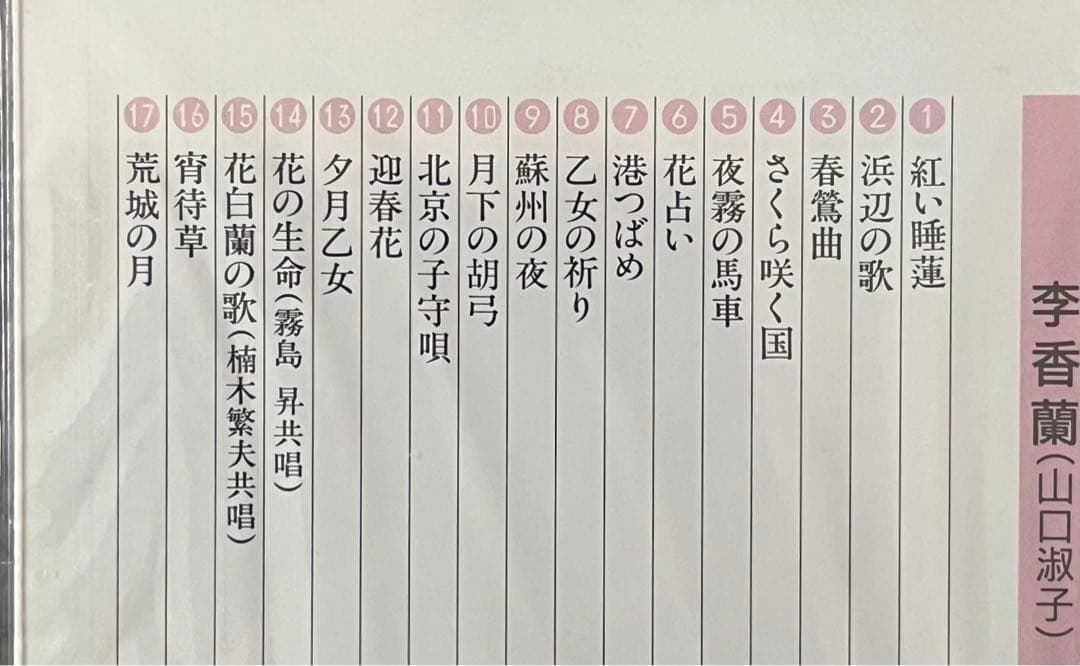 李香蘭(山口淑子)
1 紅い睡蓮
2 浜辺の歌
3 春鶯曲
4 さくら咲く国
5 夜霧の馬車
6 花占い
7 港つばめ
8 乙女の祈り
9 蘇州の夜
10 月下の胡弓
11 北京の子守唄
12 迎春花
13 夕月乙女
14 花の生命(霧島 昇共唱)
15 花白蘭の歌(楠木繁夫共唱)
16 宵待草
17 荒城の月